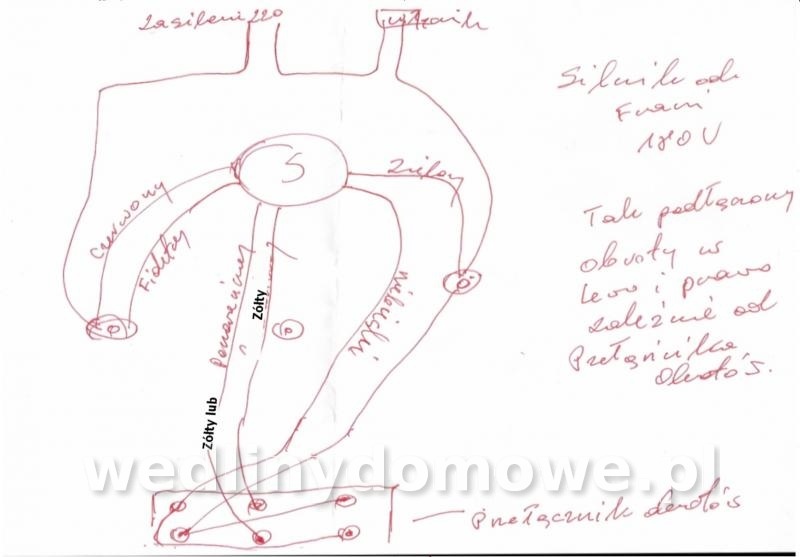 Zasilenie 220
włącznik
Silnik od
Frani
180 V
S
Zielony
Czerwony
Fioletowy
Pomarańczowy
Żółty
Niebieski
Tak podłączony
obroty w
lewo i prawo
zależnie od
Przełącznika
obrotów.
Żółty lub
wedlinydomowe.pl
Przełącznik obrotów